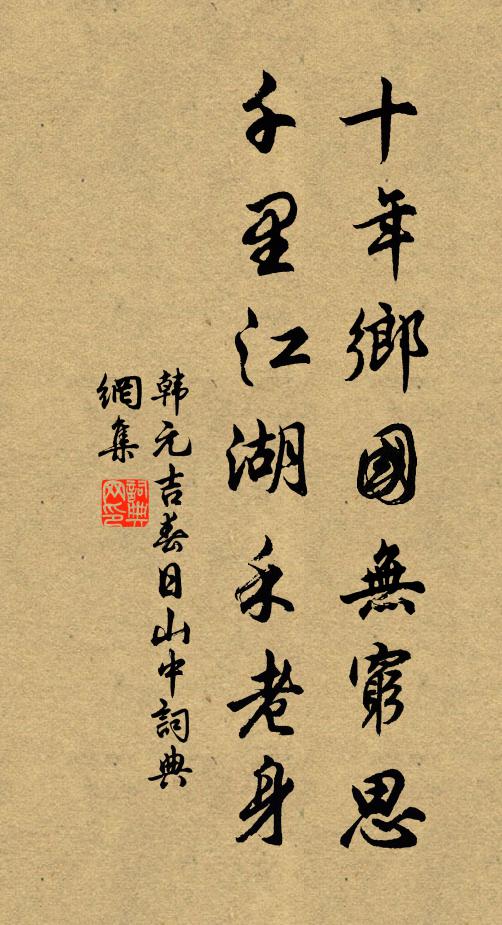 十年鄉國無窮思
千里江湖未老身
韩元吉春日山中詞典
網集
詞典
网印